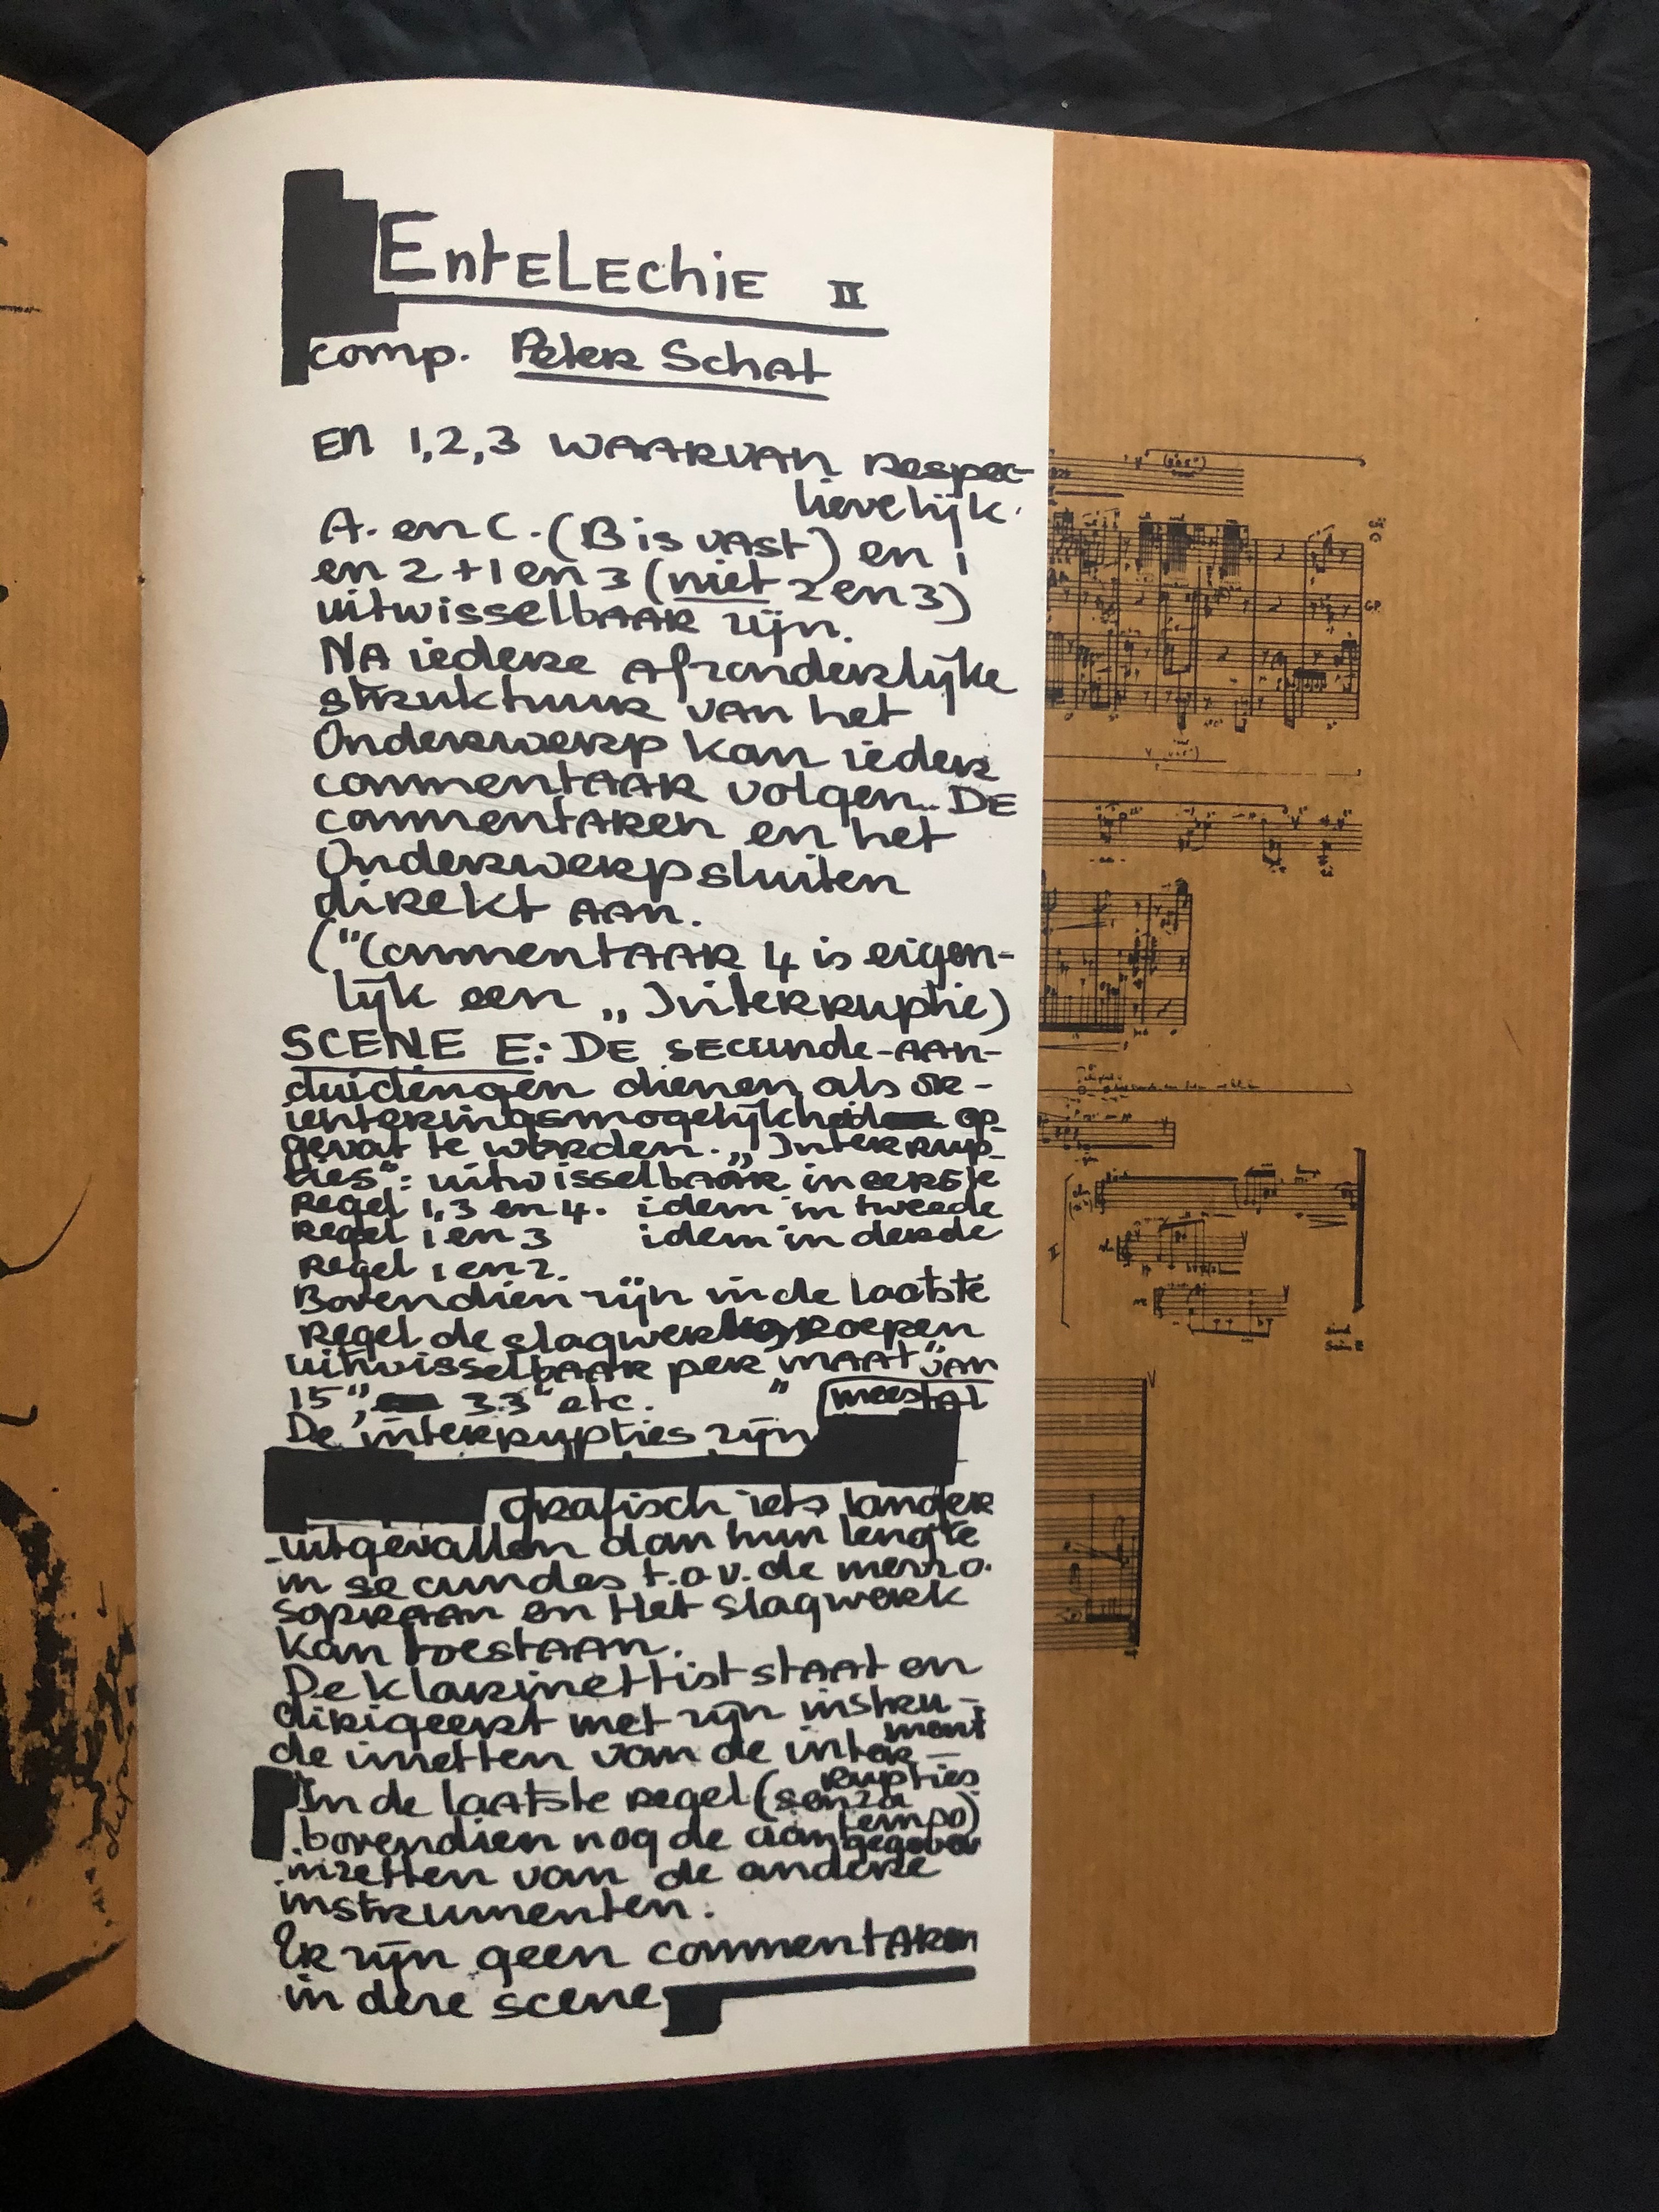 EntELEchiE II
comp. Peter Schat
En 1,2,3 WAARVAN Respec-
tievelijk.
A. en C. (B is vast) en 1
en 2 + 1 en 3 (niet 2 en 3)
uitwisselbAAR zijn.
NA iedere Afzonderlijke
struktuur van het
Onderwerp kan ieder
commentAAR volgen.. DE
commentaren en het
Onderwerp sluiten
direkt AAn.
("CommentAAR 4 is eigen-
lijk een „Interruptie)
SCENE E: DE secunde-AAn-
duidingen dienen als or-
iënteringsmogelijkheid op-
gevat te worden. „Interrup-
ties": uitwisselbaar in eerste
Regel 1, 3 en 4. idem in tweede
Regel 1 en 3 idem in derde
Regel 1 en 2.
Bovendien zijn in de laatste
Regel de slagwerkgroepen
uitwisselbAAR per "mAAt" van
15", 33" etc. " meestAl
De interrupties zijn
grafisch iets langer
uitgevallen dan hun lengte
in secundes t.o.v. de mezzo.
soprAAn en Het slagwerk
kan toestAAn.
De klarinettist stAAt en
dirigeert met zijn instru-
ment
de inzetten van de inter-
rupties
In de laatste regel (senza
tempo)
bovendien nog de aangegeven
inzetten van de andere
instrumenten.
Er zijn geen commentaren
in deze scene
GP